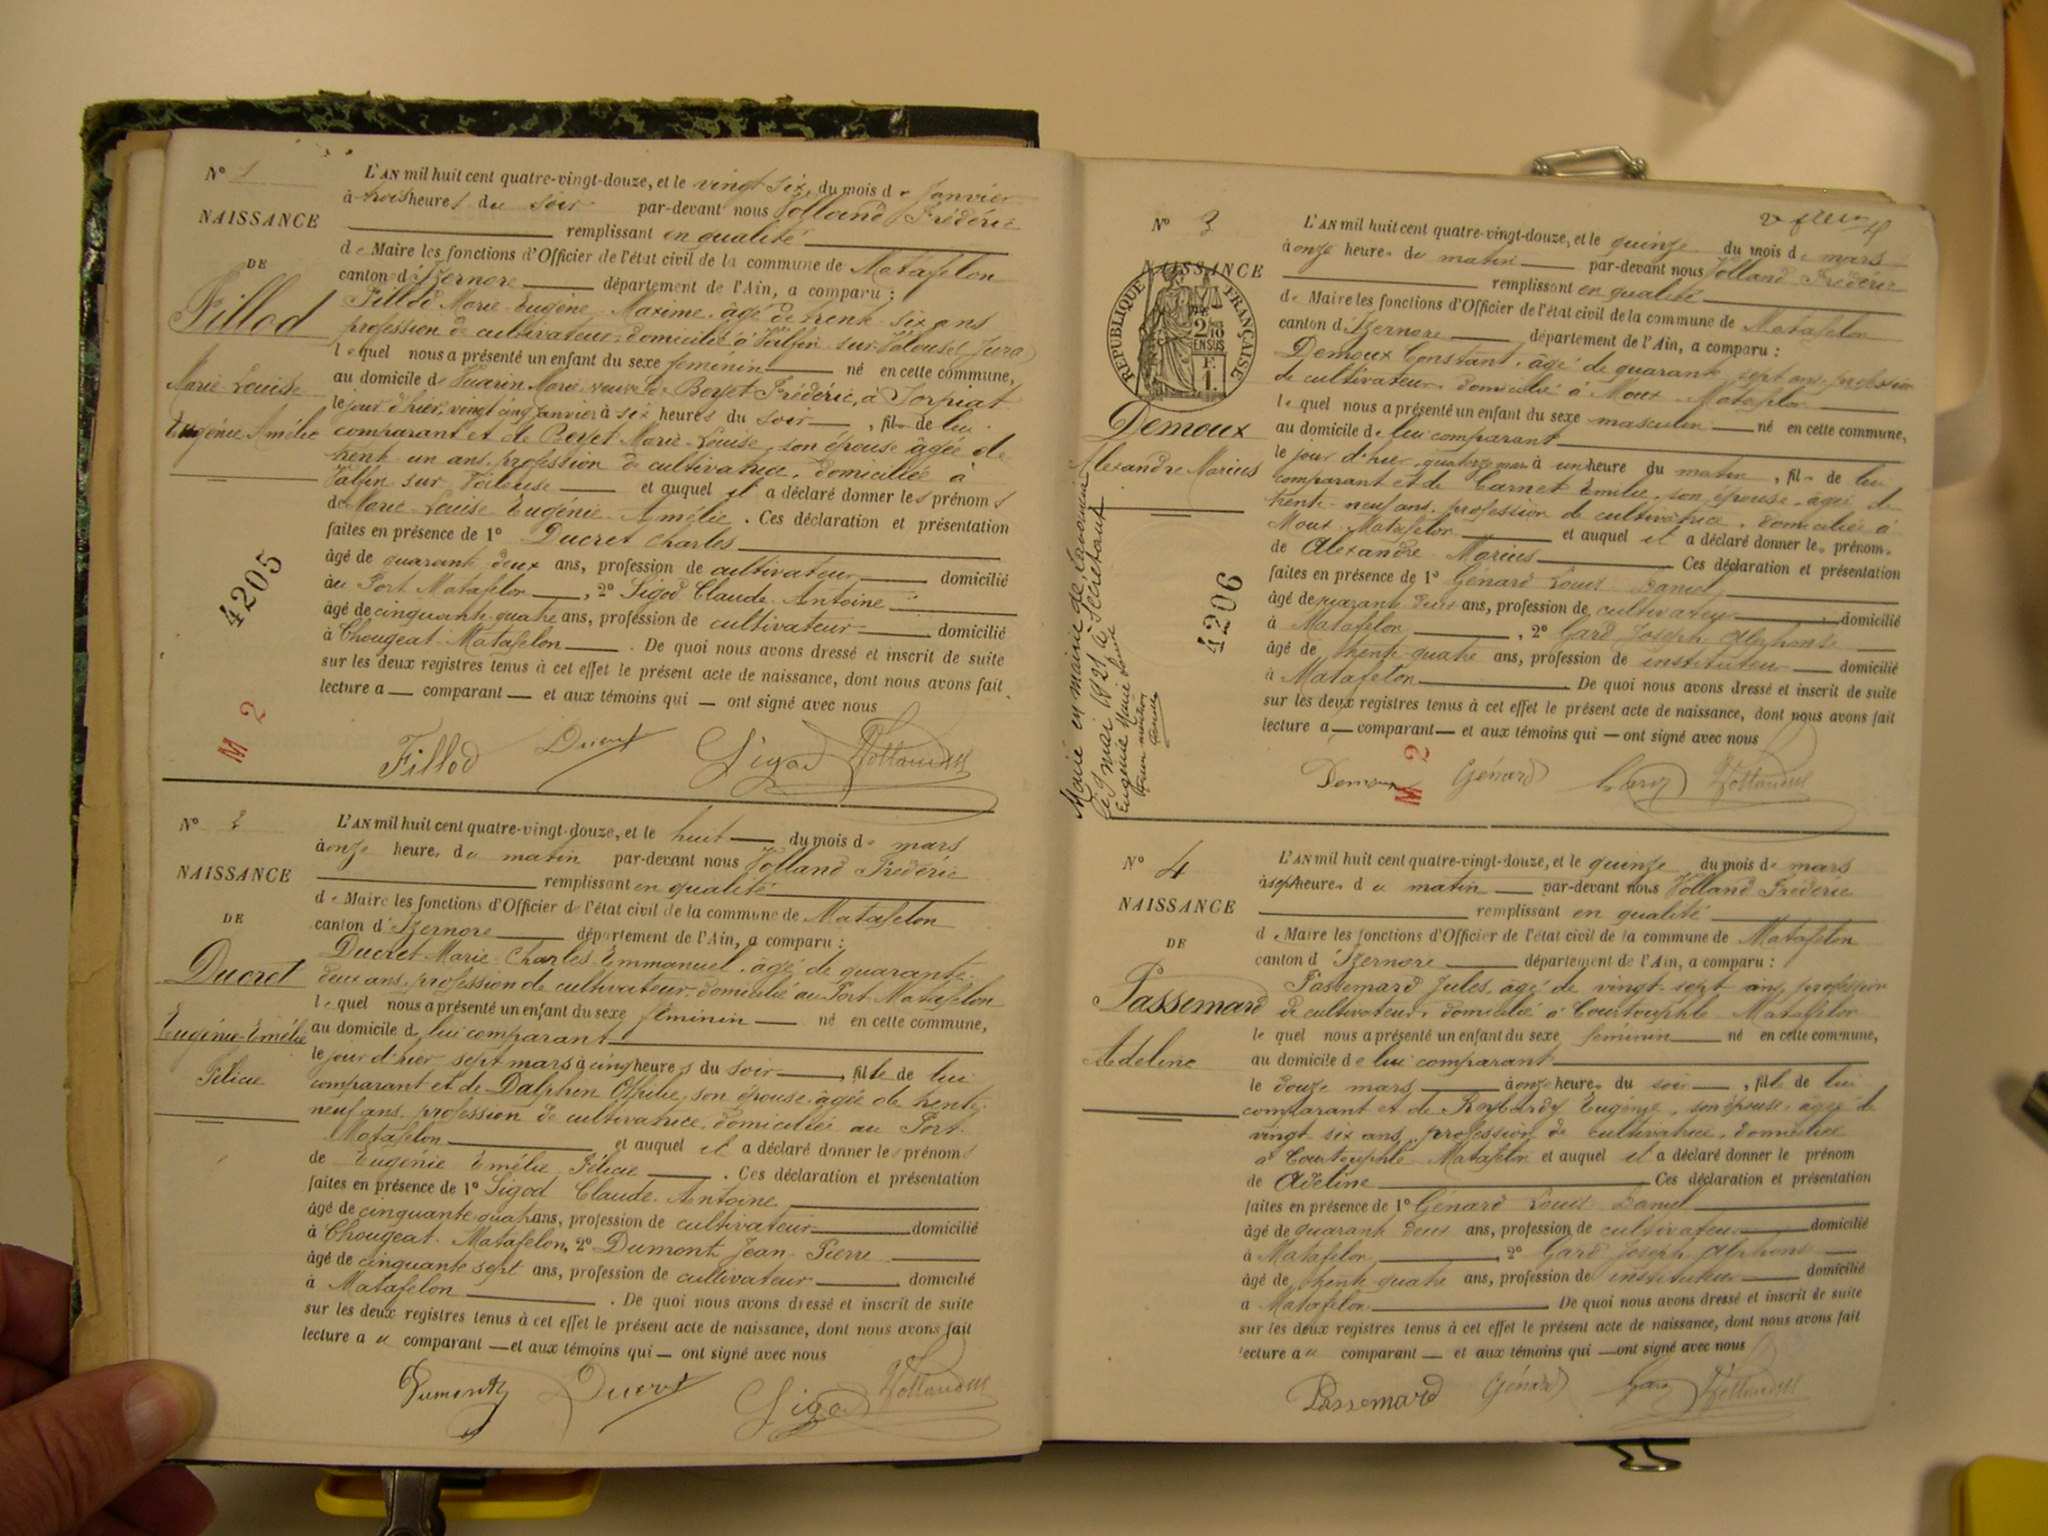 Nº 1
NAISSANCE
DE
Fillod
Marie Louise
Eugénie Amélie
4205
M 2
L'AN mil huit cent quatre-vingt-douze, et le vingt six du mois de Janvier
à trois heures du soir par-devant nous Volland Frédéric
remplissant en qualité
de Maire les fonctions d'Officier de l'état civil de la commune de Matafelon
canton d'Izernore département de l'Ain, a comparu :
Fillod Marie Eugène Maxime âgé de trente six ans
profession de cultivateur, domicilié à Valfin sur Valouse (Jura)
lequel nous a présenté un enfant du sexe féminin né en cette commune,
au domicile de Vuarin Marie veuve de Beyet Frédéric, à Corpiat
le jour d'hier, vingt cinq janvier à six heures du soir, fille de lui
comparant et de Beyet Marie Louise, son épouse âgée de
trente un ans, profession de cultivatrice, domiciliée à
Valfin sur Valouse et auquel il a déclaré donner les prénoms
de Marie Louise Eugénie Amélie. Ces déclaration et présentation
faites en présence de 1º Ducret Charles
âgé de quarante deux ans, profession de cultivateur domicilié
au Port Matafelon, 2º Sigod Claude Antoine
âgé de cinquante quatre ans, profession de cultivateur domicilié
à Chougeat Matafelon. De quoi nous avons dressé et inscrit de suite
sur les deux registres tenus à cet effet le présent acte de naissance, dont nous avons fait
lecture a comparant et aux témoins qui ont signé avec nous
Fillod Ducret Sigod Vollandfd
Nº 2
NAISSANCE
DE
Ducret
Eugénie-Emélie
Félicie
L'AN mil huit cent quatre-vingt-douze, et le huit du mois de mars
à onze heures du matin par-devant nous Volland Frédéric
remplissant en qualité
de Maire les fonctions d'Officier de l'état civil de la commune de Matafelon
canton d'Izernore département de l'Ain, a comparu :
Ducret Marie-Charles Emmanuel, âgé de quarante
deux ans, profession de cultivateur, domicilié au Port Matafelon
lequel nous a présenté un enfant du sexe féminin né en cette commune,
au domicile de lui comparant
le jour d'hier sept mars à cinq heures du soir, fille de lui
comparant et de Dalphin Ophilie, son épouse âgée de trente
neuf ans, profession de cultivatrice, domiciliée au Port
Matafelon et auquel il a déclaré donner les prénoms
de Eugénie Emélie Félicie. Ces déclaration et présentation
faites en présence de 1º Sigod Claude Antoine
âgé de cinquante quatre ans, profession de cultivateur domicilié
à Chougeat Matafelon, 2º Dumont Jean-Pierre
âgé de cinquante sept ans, profession de cultivateur domicilié
à Matafelon. De quoi nous avons dressé et inscrit de suite
sur les deux registres tenus à cet effet le présent acte de naissance, dont nous avons fait
lecture au comparant et aux témoins qui ont signé avec nous
Dumont Ducret Sigod Vollandfd
Nº 3
NAISSANCE
RÉPUBLIQUE FRANÇAISE
Demoux
Alexandre Marius
4206
M 2
Marié en mairie de
le 7 mai 1921 à
Eugénie Marie
L'AN mil huit cent quatre-vingt-douze, et le quinze du mois de mars
à onze heures du matin par-devant nous Volland Frédéric
remplissant en qualité
de Maire les fonctions d'Officier de l'état civil de la commune de Matafelon
canton d'Izernore département de l'Ain, a comparu :
Demoux Constant, âgé de quarante sept ans, profession
de cultivateur, domicilié à Moux Matafelon
lequel nous a présenté un enfant du sexe masculin né en cette commune,
au domicile de lui comparant
le jour d'hier, quatorze mars à une heure du matin, fils de lui
comparant et de Carnet Emilie, son épouse, âgée de
trente-neuf ans, profession de cultivatrice, domiciliée à
Moux Matafelon et auquel il a déclaré donner les prénoms
de Alexandre Marius Ces déclaration et présentation
faites en présence de 1º Génard Louis Daniel
âgé de quarante deux ans, profession de cultivateur domicilié
à Matafelon, 2º Gard Joseph Alphonse
âgé de trente-quatre ans, profession de instituteur domicilié
à Matafelon De quoi nous avons dressé et inscrit de suite
sur les deux registres tenus à cet effet le présent acte de naissance, dont nous avons fait
lecture a comparant et aux témoins qui ont signé avec nous
Demoux Génard Gard Vollandfd
Nº 4
NAISSANCE
DE
Passemard
Adeline
L'AN mil huit cent quatre-vingt-douze, et le quinze du mois de mars
à sept heures du matin par-devant nous Volland Frédéric
remplissant en qualité
de Maire les fonctions d'Officier de l'état civil de la commune de Matafelon
canton d'Izernore département de l'Ain, a comparu :
Passemard Jules, âgé de vingt-sept ans, profession
de cultivateur, domicilié à Courtouphle Matafelon
lequel nous a présenté un enfant du sexe féminin né en cette commune,
au domicile de lui comparant
le douze mars à onze heures du soir, fille de lui
comparant et de Reybardy Eugénie, son épouse, âgée de
vingt-six ans, profession de cultivatrice, domiciliée
à Courtouphle Matafelon et auquel il a déclaré donner le prénom
de Adeline Ces déclaration et présentation
faites en présence de 1º Génard Louis Daniel
âgé de quarante deux ans, profession de cultivateur domicilié
à Matafelon, 2º Gard Joseph Alphonse
âgé de trente-quatre ans, profession de instituteur domicilié
à Matafelon De quoi nous avons dressé et inscrit de suite
sur les deux registres tenus à cet effet le présent acte de naissance, dont nous avons fait
lecture au comparant et aux témoins qui ont signé avec nous
Passemard Génard Gard Vollandfd